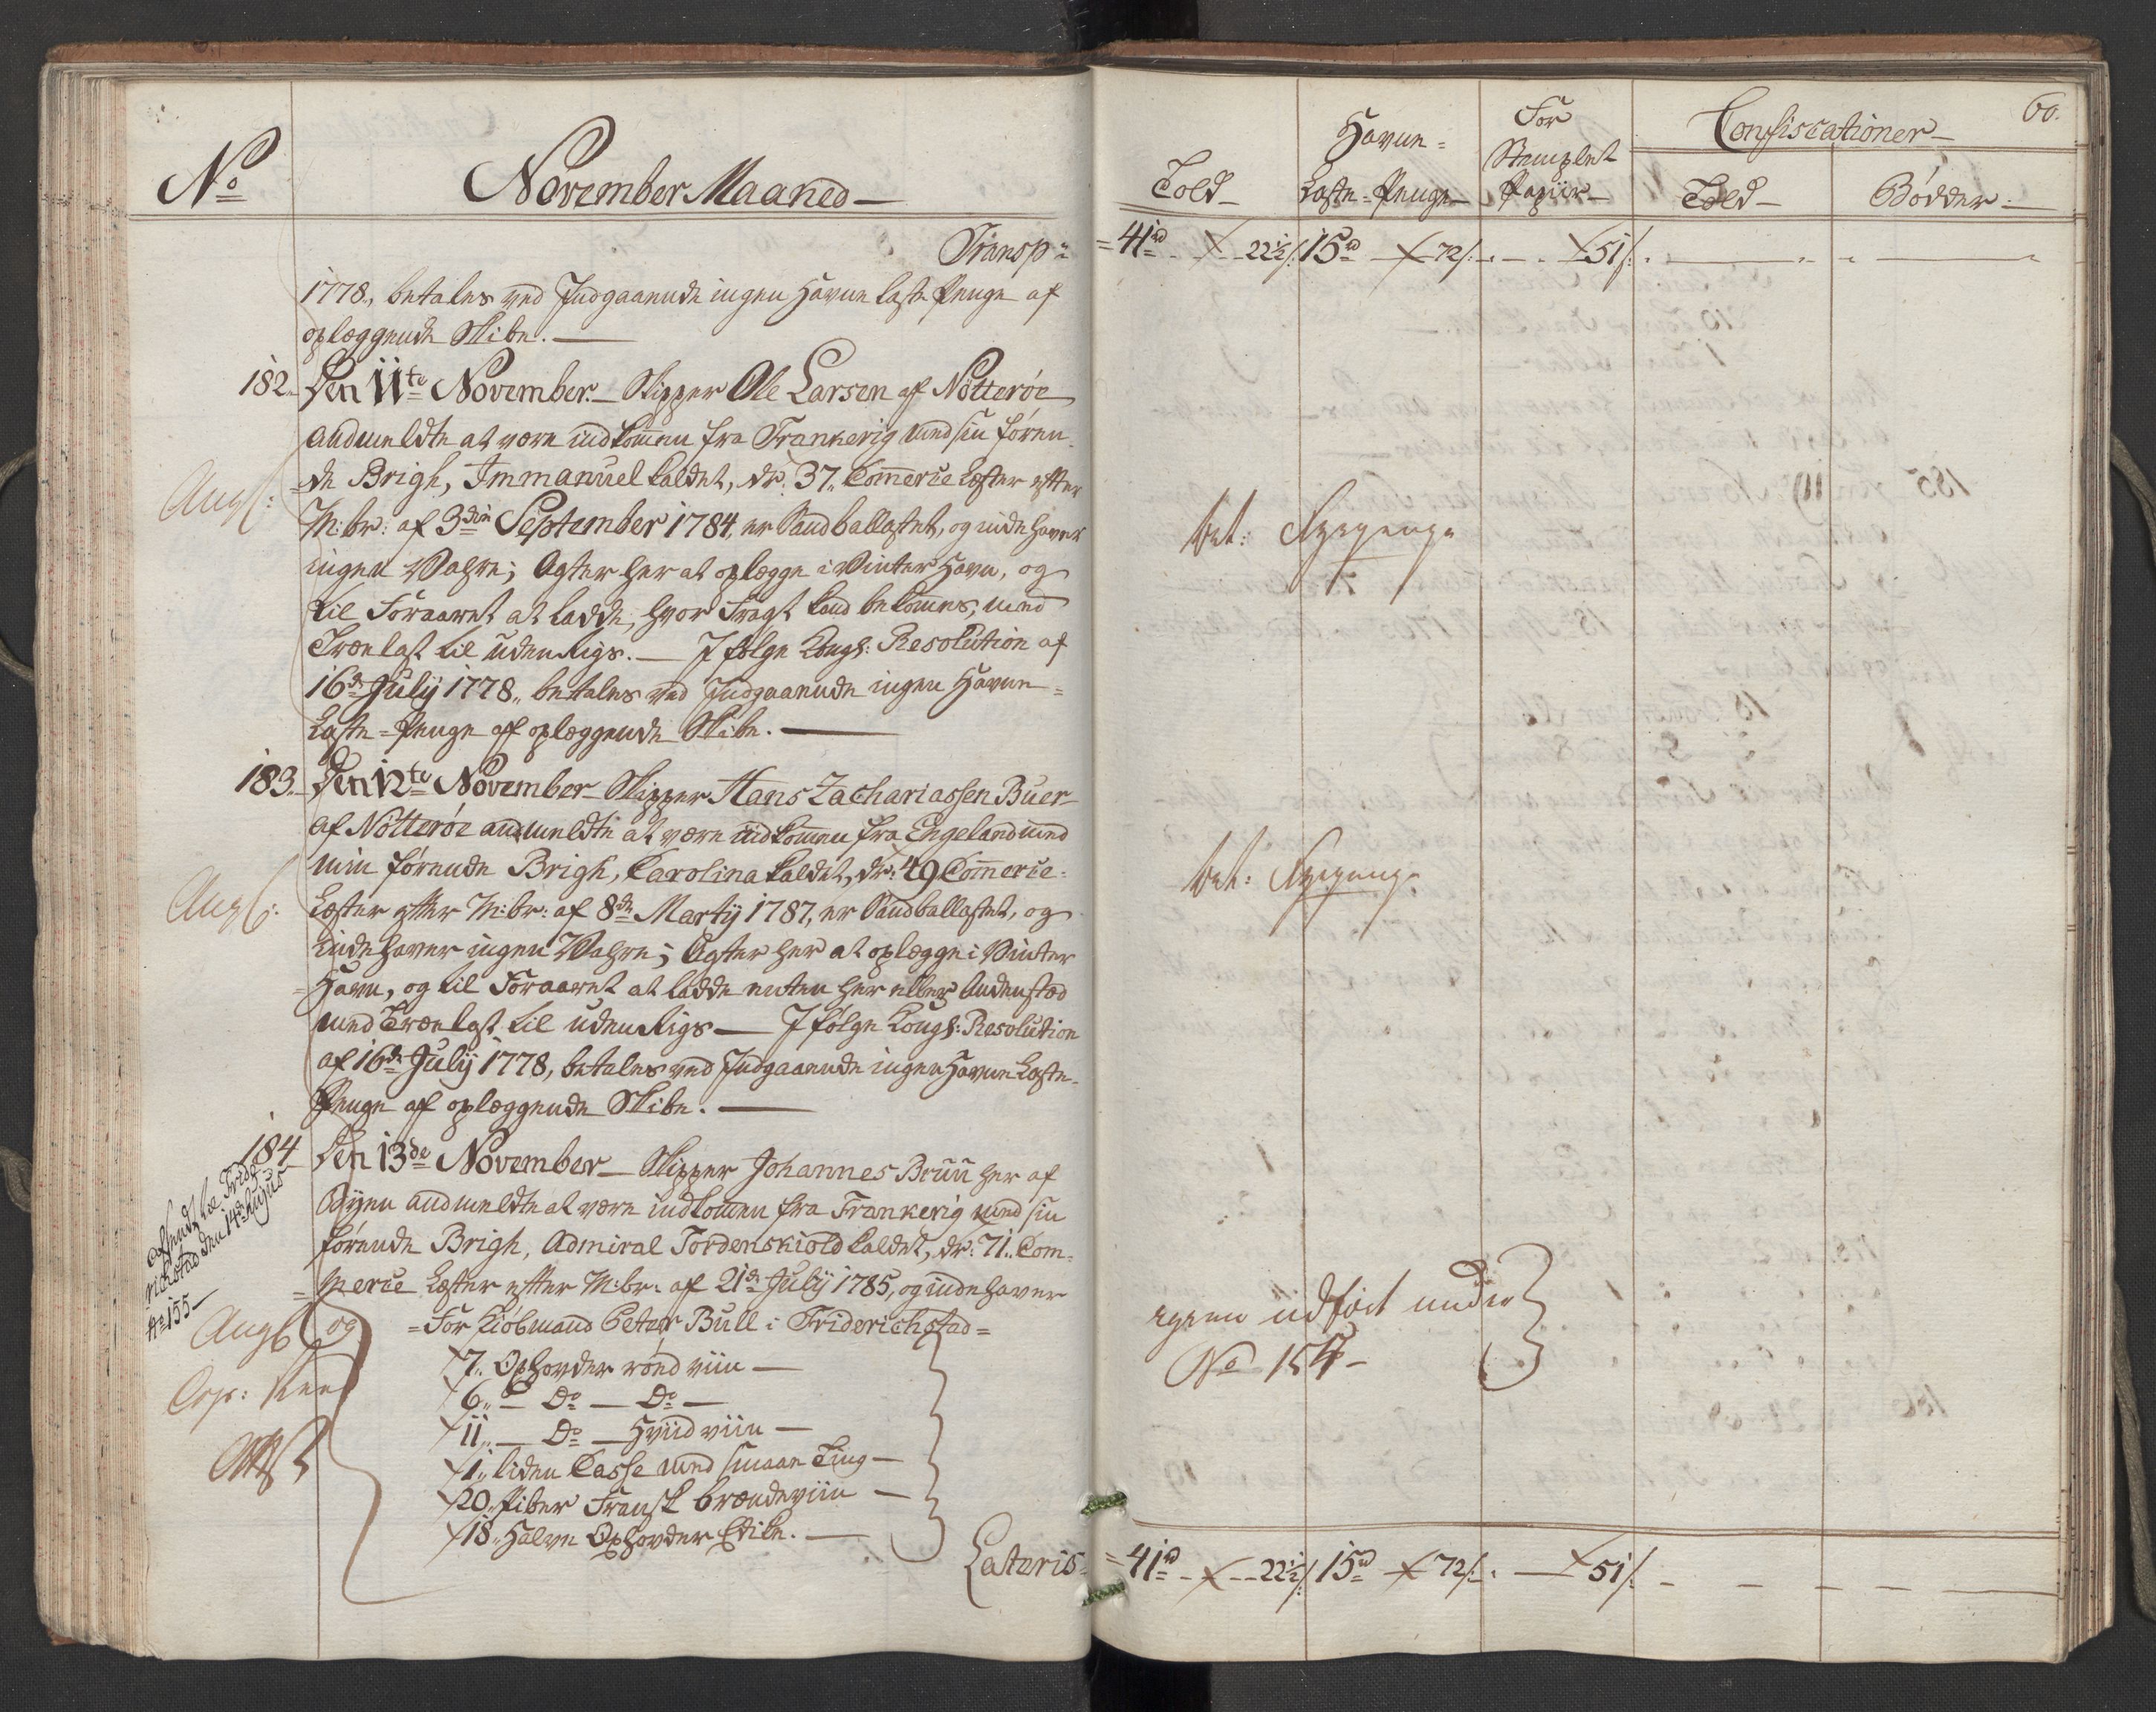 No
November Maaned
Transp:
1778, betales ved Indgaaende ingen Havne Laste Penge af
oplæggende Skibe.
182. Den 11te November. Skipper Ole Larsen af Nötteröe
Andmeldte at være indkommen fra Frankerig med sin føren-
=de Brigh, Immanuel kaldet, dr: 37. Commerce Læster efter
M:br: af 3die September 1784, er Sandballastet, og indehaver
ingen Vahre; Agter her at oplægge i Vinter Havn, og
til Foraaret at ladde, hvor Fragt kand bekommes, med
Trælast til udenrigs. I følge Kongl: Resolution af
16de Julij 1778, betales ved Indgaaende ingen Havne=
Laste=Penge af oplæggende Skibe.
183. Den 12te November Skipper Hans Zachariassen Buer
af Nötteröe andmeldte at være indkommen fra Engeland med
min førende Brigh, Carolina kaldet, dr: 49 Commerce
Læster efter M:br: af 8de Martij 1787, er Sandballastet, og
indehaver ingen Vahre; Agter her at oplægge i Vinter
=Havn, og til Foraaret at ladde enten her eller andenstæd
med Trælast til udenrigs I følge Kongl: Resolution
af 16de Julij 1778, betales ved Indgaaende ingen Havne Laste
Penge af oplæggende Skibe.
184 Den 13de November Skipper Johannes Bruun her af
Byen andmeldte at være indkommen fra Frankerig med sin
førende Brigh, Admiral Tordenskiold kaldet, dr: 71. Com-
=merce Læster efter M:br: af 21de Julij 1785, og indehaver
=For Kiöbmand Peter Bull i Friderichstad=
7. Oxhovder röed viin
6. Do Do
11. Do Hviid viin
1. liden Casse med smaae Ting
20. Piber Fransk brændeviin
18. Halve Oxhovder Edike.
Lateris
Afsendt til Fride-
richstad den 14de hujus
No 155
Ang
Ang
Ang og
60.
Told
Havne=
Laste=Penge
For
Stemplet
Papiir
Confiscationer
Told
Bödder
=41rd 22½ s: 15rd 72 s: 51 s:
bet:
bet:
udfört under
No 154
=41rd 22½ s: 15rd 72 s: 51 s: